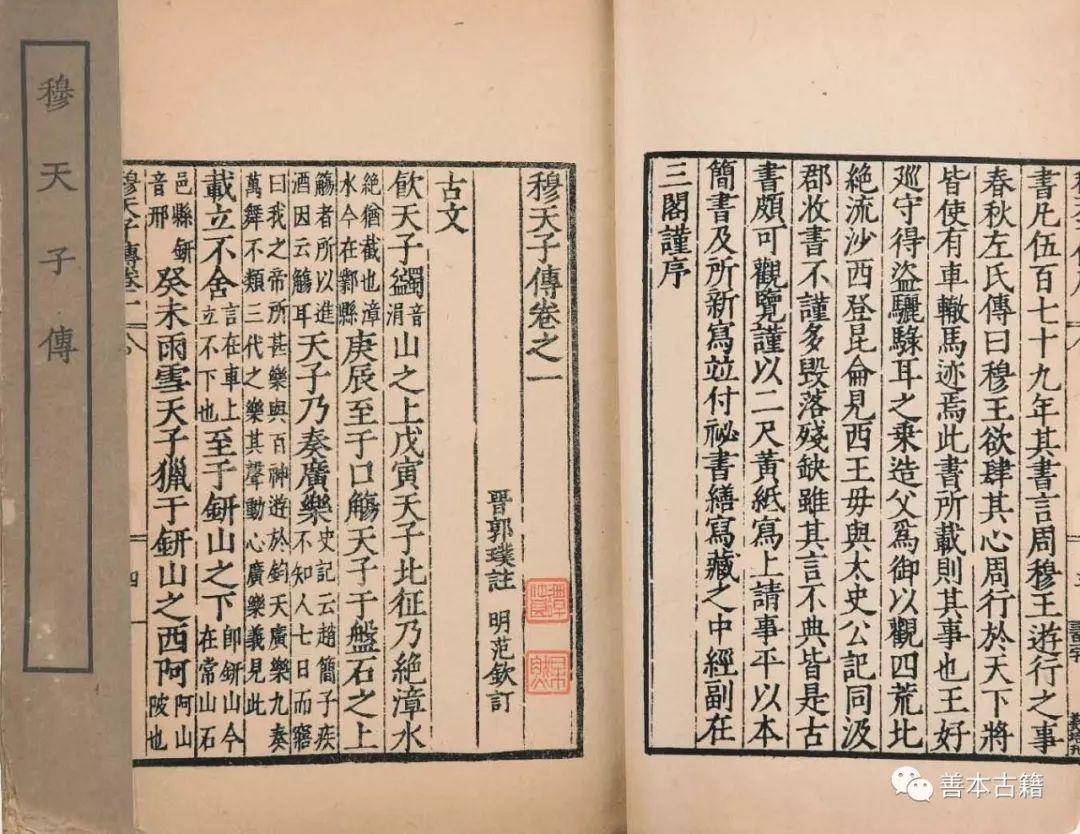 穆天子傳
書凡伍百七十九年其書言周穆王遊行之事
春秋左氏傳曰穆王欲肆其心周行於天下將
皆使有車轍馬迹焉此書所載則其事也王好
廵守得盜驪騄耳之乗造父爲御以觀四荒北
絶流沙西登昆侖見西王母與太史公記同汲
郡收書不謹多毁落殘缺雖其言不典皆是古
書頗可觀覽謹以二尺黃紙寫上請事平以本
簡書及所新寫並付祕書繕寫藏之中經副在
三閣謹序
穆天子傳卷之一
晋郭璞註 明范欽訂
古文
飮天子蠲音涓山之上戊寅天子北征乃絶漳水
絶猶截也漳水今在鄴縣庚辰至于口觴天子于盤石之上
觴者所以進酒因云觴耳天子乃奏廣樂史記云趙簡子疾不知人七日而寤
曰我之帝所甚樂與百神遊於鈞天廣樂九奏萬舞不類三代之樂其聲動心廣樂義見此
載立不舍言在車上立不下也至于鈃山之下即鈃山今在常山石
邑縣鈃音邢癸未雨雪天子獵于鈃山之西阿阿山陂也
穆天子傳卷一
四
善本古籍